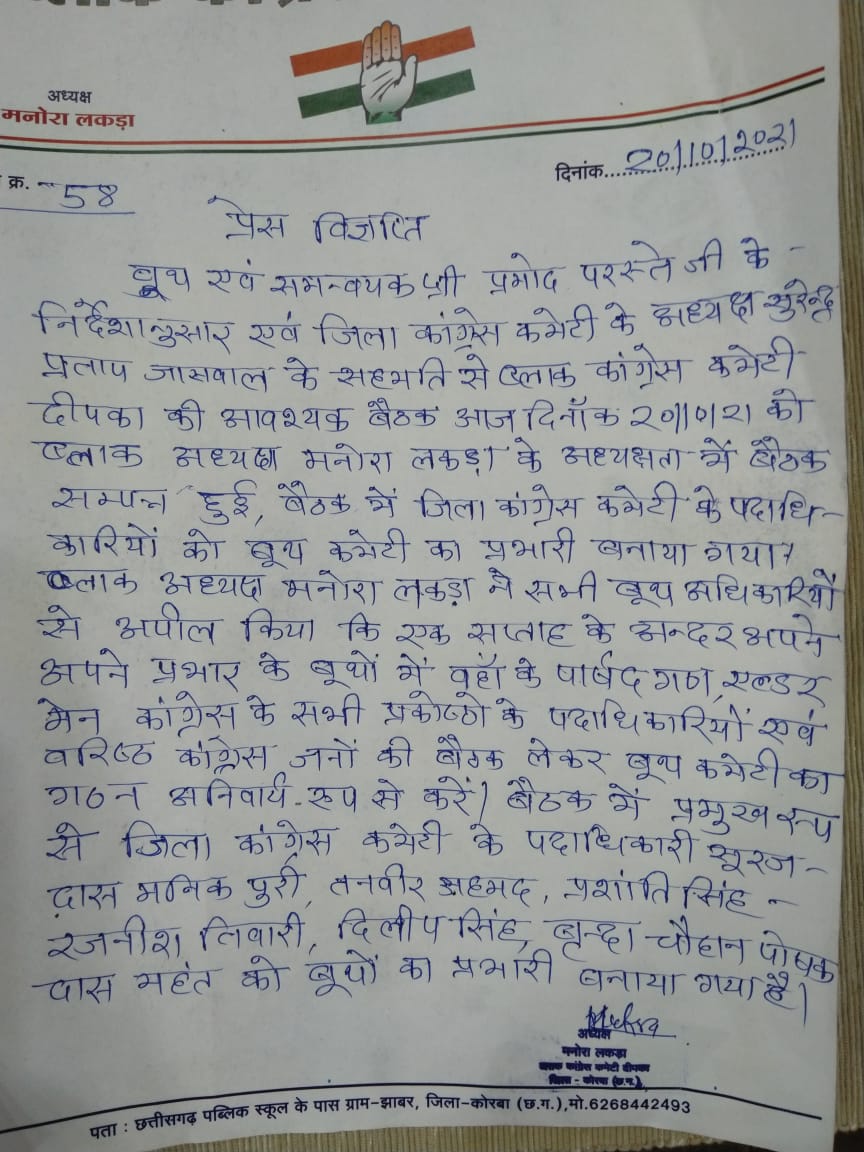 अध्यक्ष
मनोरा लकड़ा
क्र. 58
दिनांक....20/10/2021
प्रेस विज्ञप्ति
बूथ एवं समन्वयक श्री प्रमोद परस्ते जी के -
निर्देशानुसार एवं जिला कांग्रेस कमेटी के अध्यक्ष सुरेन्द्र
प्रताप जासवाल के सहमति से ब्लाक कांग्रेस कमेटी
दीपका की आवश्यक बैठक आज दिनाँक 20/10/21 को
ब्लाक अध्यक्ष मनोरा लकड़ा के अध्यक्षता में बैठक
सम्पन्न हुई, बैठक में जिला कांग्रेस कमेटी के पदाधि-
कारियों को बूथ कमेटी का प्रभारी बनाया गया।
ब्लाक अध्यक्ष मनोरा लकड़ा ने सभी बूथ अधिकारियों
से अपील किया कि एक सप्ताह के अन्दर अपने
अपने प्रभार के बूथों में वहाँ के पार्षद गण, एल्डर
मेन कांग्रेस के सभी प्रकोष्ठो के पदाधिकारियों एवं
वरिष्ठ कांग्रेस जनों की बैठक लेकर बूथ कमेटी का
गठन अनिवार्य-रूप से करें। बैठक में प्रमुख रूप
से जिला कांग्रेस कमेटी के पदाधिकारी सूरज-
दास मनिक पुरी, तनवीर अहमद, प्रशांति सिंह -
रजनीश तिवारी, दिलीप सिंह, बृन्दा चौहान पोषक
दास महंत को बूथों का प्रभारी बनाया गया है।
अध्यक्ष
मनोरा लकड़ा
ब्लाक कांग्रेस कमेटी दीपका
जिला - कोरबा (छ.ग.)
पता : छत्तीसगढ़ पब्लिक स्कूल के पास ग्राम-झाबर, जिला-कोरबा (छ.ग.),मो.6268442493